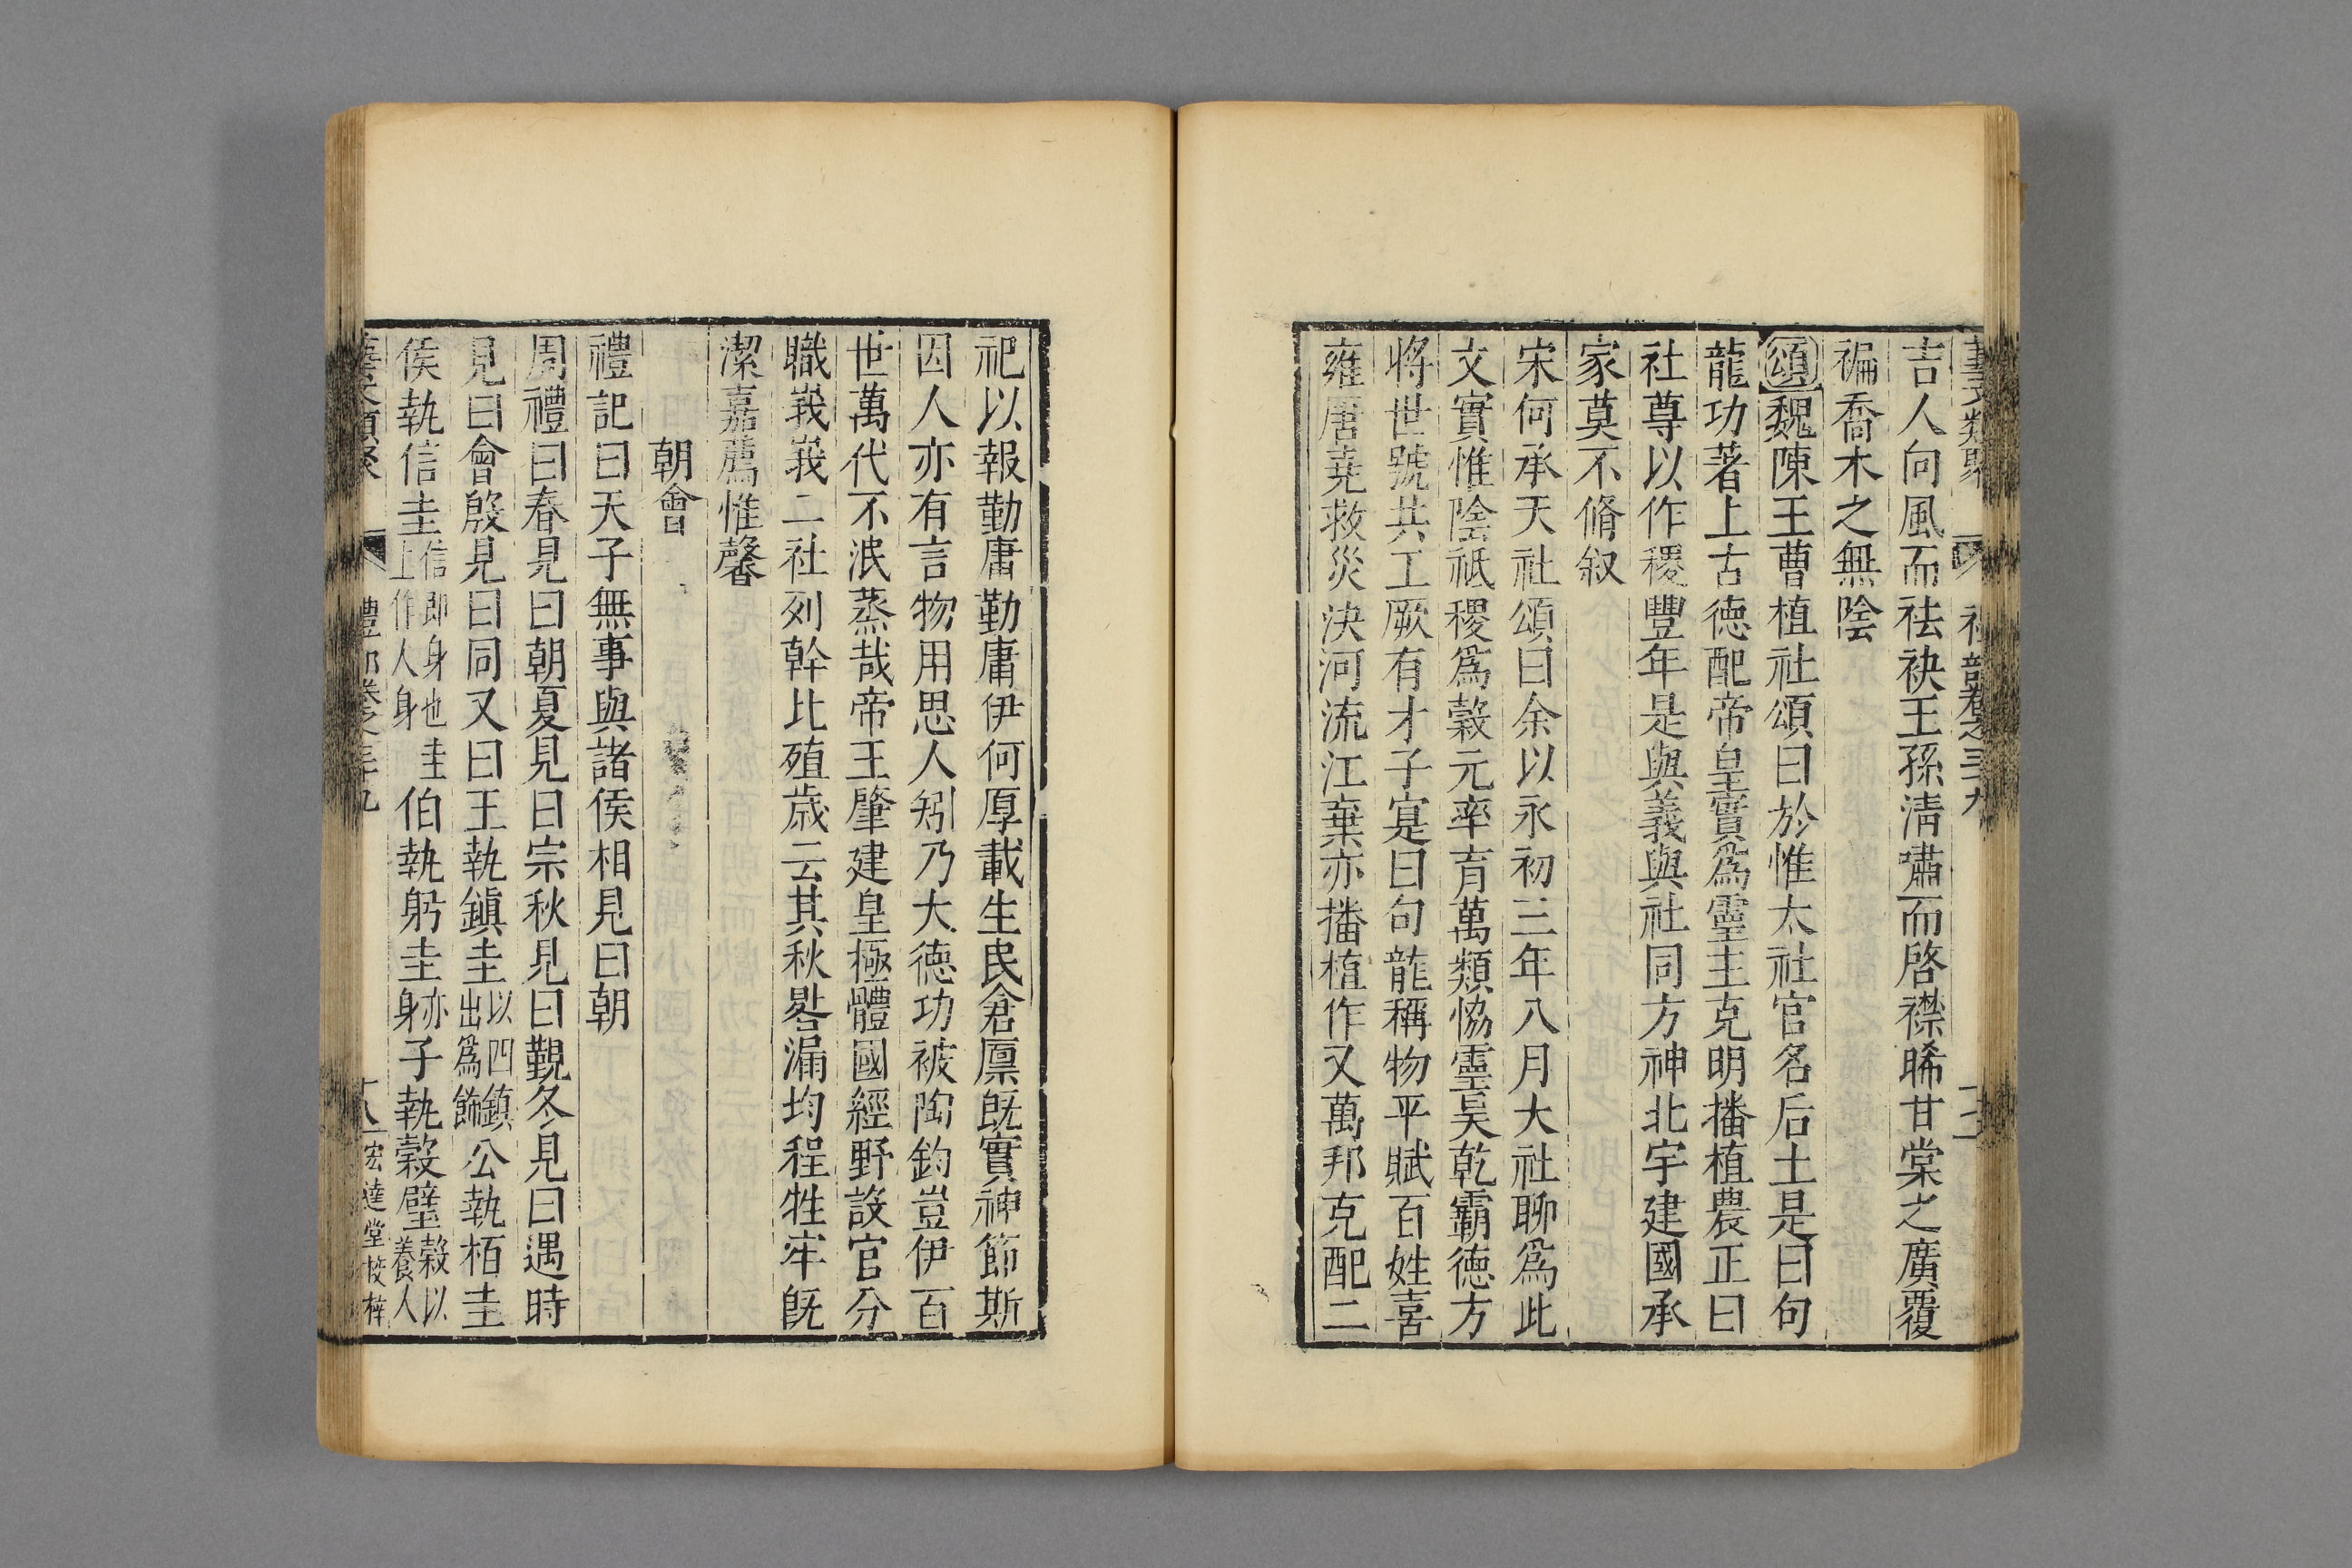 吉人向風而祛袂王孫清嘯而啓襟晞甘棠之廣覆
褊喬木之無陰
頌魏陳王曹植社頌曰於惟太社官名后土是曰句
龍功著上古德配帝皇實爲靈主克明播植農正曰
社尊以作稷豐年是與義與社同方神北宇建國承
家莫不脩叙
宋何承天社頌曰余以永初三年八月大社聊爲此
文實惟陰祇稷爲穀元率育萬類恊靈昊乾霸德方
將世號共工厥有才子寔曰句龍稱物平賦百姓喜
雍唐堯救災決河流江棄亦播植作乂萬邦克配二
祀以報勤庸勤庸伊何厚載生民倉廩旣實神節斯
因人亦有言物用思人矧乃大德功被陶鈞豈伊百
世萬代不泯蒸哉帝王肇建皇極體國經野設官分
職峩峩二社列幹比殖歲云其秋晷漏均程牲牢旣
潔嘉薦惟馨
朝會
禮記曰天子無事與諸侯相見曰朝
周禮曰春見曰朝夏見曰宗秋見曰覲冬見曰遇時
見曰會殷見曰同又曰王執鎮圭以四鎮出爲飾公執栢圭
侯執信圭信即身也圭上作人身伯執躬圭亦身子執穀璧穀以養人
藝文類聚 禮部卷之三十九 十八 宏達堂校梓